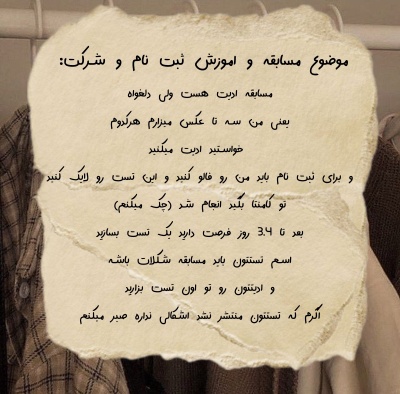 موضوع مسابقه و اموزش ثبت نام و شرکت:
مسابقه ادیت هست ولی دلخواه
یعنی من سه تا عکس میزارم هرکدوم
خواستید ادیت میکنید
و برای ثبت نام باید من رو فالو کنید و این تست رو لایک کنید
تو کامنتا بگید انجام شد (چک میکنم)
بعد تا 3.4 روز فرصت دارید یک تست بسازید
اسم تستتون باید مسابقه شکلات باشه
و ادیتتون رو تو اون تست بزارید
اگرم که تستتون منتشر نشد اشکالی نداره صبر میکنم